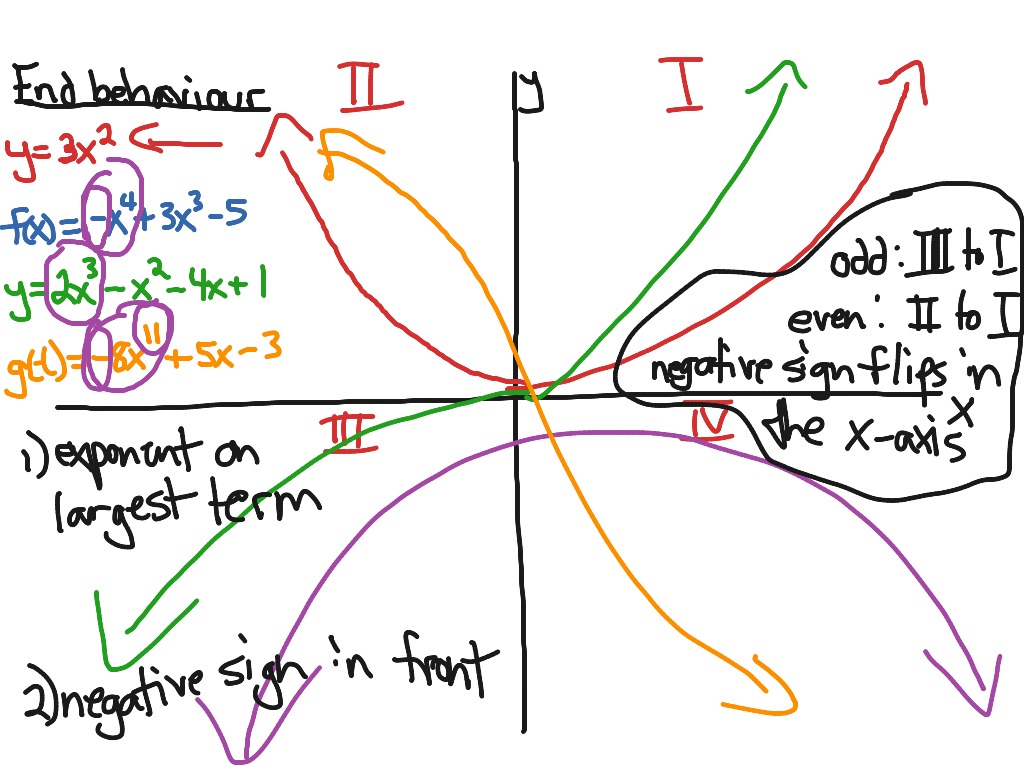 End behaviour
y=3x²
f(x)=-x⁴+3x³-5
y=2x³-x²-4x+1
g(t)=-8x¹¹+5x-3
II
I
y
odd: III to I
even: II to I
negative sign flips in
the x-axis
x
III
IV
1) exponent on
largest term
2) negative sign in front